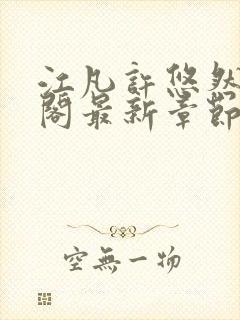 江凡許悠然
閣最新章節
空無一物